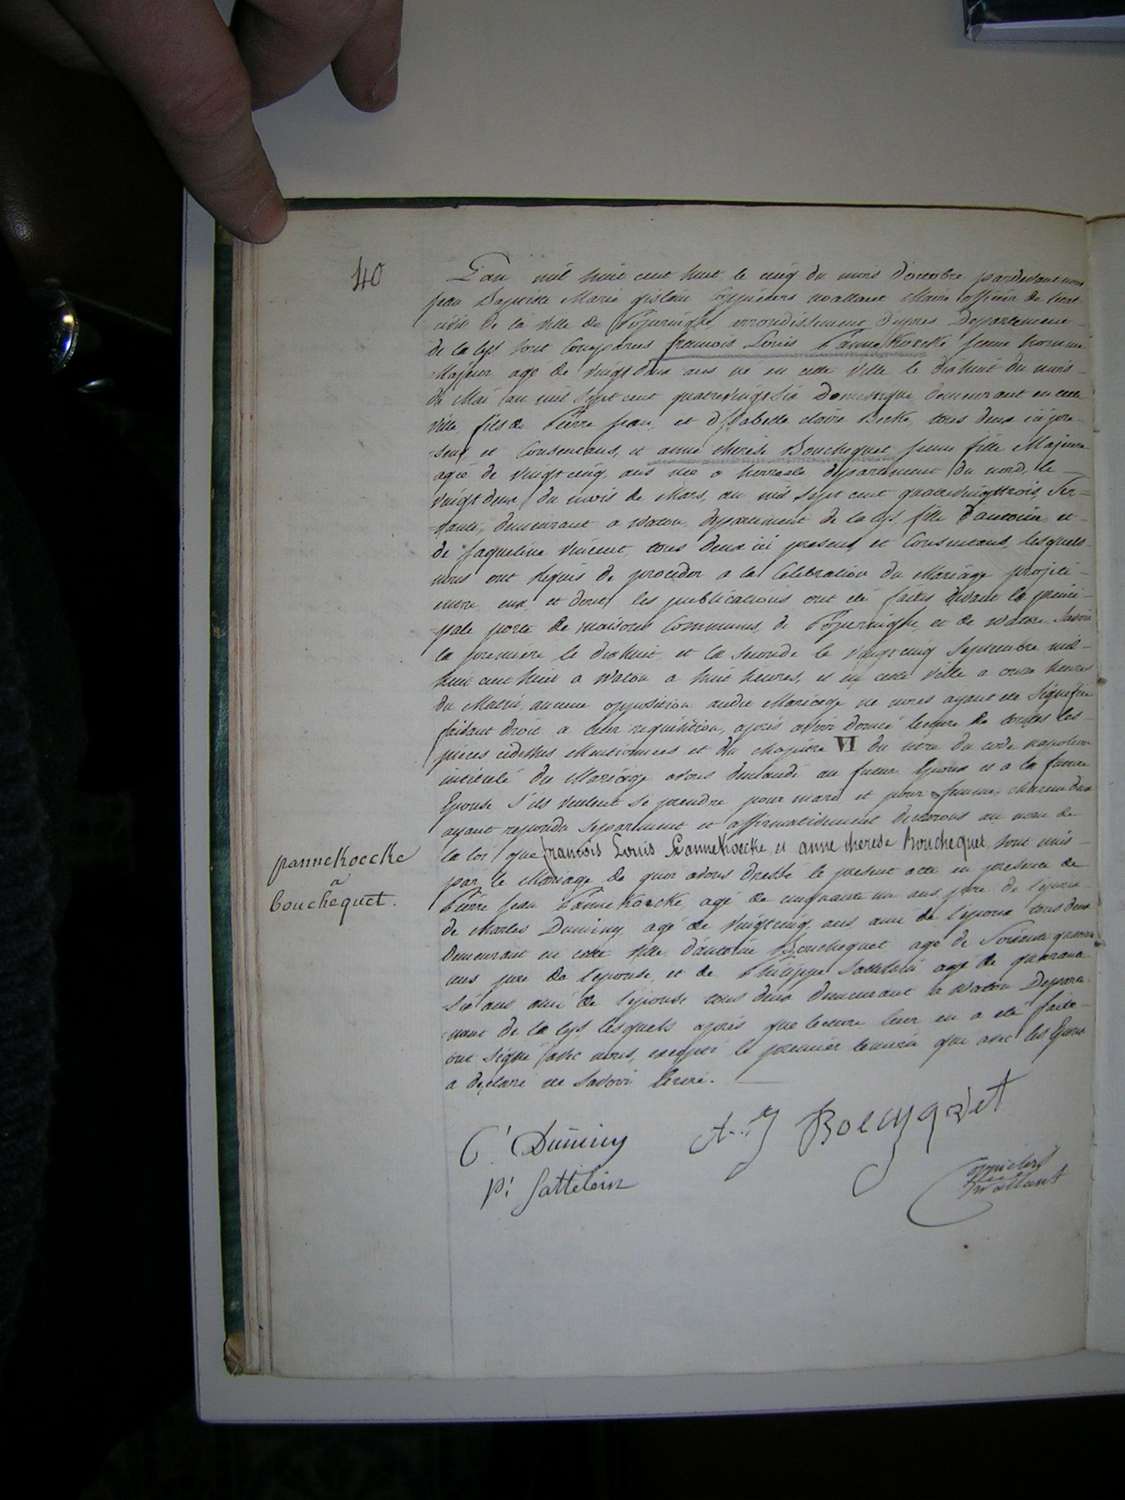 40
L'an mil huit cent huit le cinq du mois d'octobre pardevant nous
jean Baptiste Marie gislain wallaert Maire officier de l'etat
civil de la ville de Poperinghe arrondissement d'ypres Departement
de la lys sont comparus francois Louis Pannekoecke jeune homme
Majeur agé de vingt deux ans né en cette ville le dixhuit du mois
de Mai an mil sept cent quatrevingt six Domestique demeurant en cette
ville fils de Pierre jean et d'isabelle claire tous deux ici pre-
sens et Consentans, et anne therese Boucheques jeune fille Majeure
agée de vingt cinq ans née a departement du nord, le
vingt deux du mois de Mars, an mil sept cent quatrevingttrois Ser-
vante, demeurant a watou departement de la lys fille d'antoine et
de jaqueline Vincent tous deux ici presens et Consentans, lesquels
nous ont requis de proceder a la Celebration du Mariage projeté
entre eux et dont les publications ont été faites devant la princi-
pale porte de maisons Communes de Poperinghe et de watou Savoir
la premiere le dixhuit et la seconde le vingtcinq Septembre mil
huit cent huit a watou a huit heures, et en cette ville a onze heures
du Matin, aucune opposition audit Mariage ne nous ayant été signifiée
faisant droit a leur requisition, après avoir donné lecture de toutes les
pieces cidessus Mentionnées et du chapitre VI du titre du code napoleon
intitulé du Mariage avons demandé au futur Epoux et a la future
Epouse s'ils veulent se prendre pour mari et pour femme, chacun deux
ayant repondu separement et affirmativement declarons au nom de
la loi que francois Louis Pannekoecke et anne therese Boucheques, sont unis
par le Mariage de quoi avons dressé le present acte en presence de
Pierre jean Pannekoecke agé de cinquante un ans pere de l'epoux
de Charles Duminy agé de vingtcinq ans ami de l'epoux tous deux
demeurant en cette ville d'antoine Bouchequet agé de Soixante quatre
ans pere de l'epouse, et de Philippe agé de quarante
six ans ami de l'epouse tous deux demeurant a watou Departe-
ment de la lys lesquels après que lecture leur en a été faite
ont signé avec nous, excepté le premier temoin qui avec les Epoux
a declaré ne savoir écrire.
pannekoecke
a
bouchequet.
C: Duminy